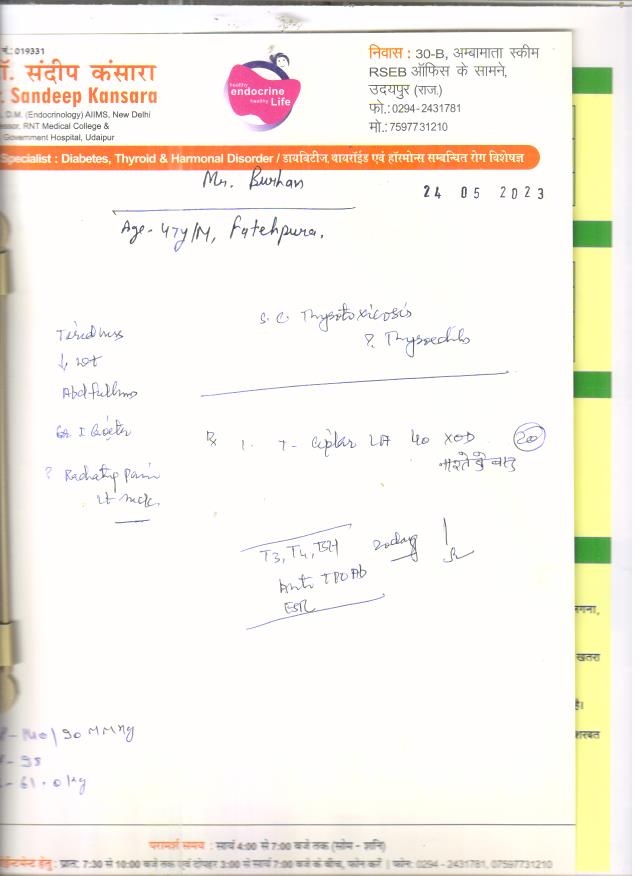 नं.: 019331
ॉ. संदीप कंसारा
r. Sandeep Kansara
, D.M. (Endocrinology) AIIMS, New Delhi
essor, RNT Medical College &
Government Hospital, Udaipur
healthy
endocrine
healthy Life
निवास : 30-B, अम्बामाता स्कीम
RSEB ऑफिस के सामने,
उदयपुर (राज.)
फो.:0294-2431781
मो.:7597731210
Specialist : Diabetes, Thyroid & Harmonal Disorder / डायबिटीज, थायरॉईड एवं हॉरमोन्स सम्बन्धित रोग विशेषज्ञ
Mr. Burhan
24 05 2023
Age - 47y/M, Fatehpura.
S. C. Thyrotoxicosis
?. Thyroiditis
Tiredness
↓ wt
Abd fullness
Gr. I Goiter
? Radiating pain
Lt neck
Rx 1. T- Ciplar LA 40 XOD 20
नाश्ते के बाद
T3, T4, TSH 20 days
Anti TPO Ab
ESR
P - 140/90 MMHg
- 98
- 61.0 kg
गना,
खतरा
है।
शरबत
परामर्श समय : सायं 4:00 से 7:00 बजे तक (सोम - शनि)
ाईन्टमेन्ट हेतु : प्रातः 7:30 से 10:00 बजे तक एवं दोपहर 3:00 से सायं 7:00 बजे के बीच, फोन करें । फोन: 0294 - 2431781, 07597731210